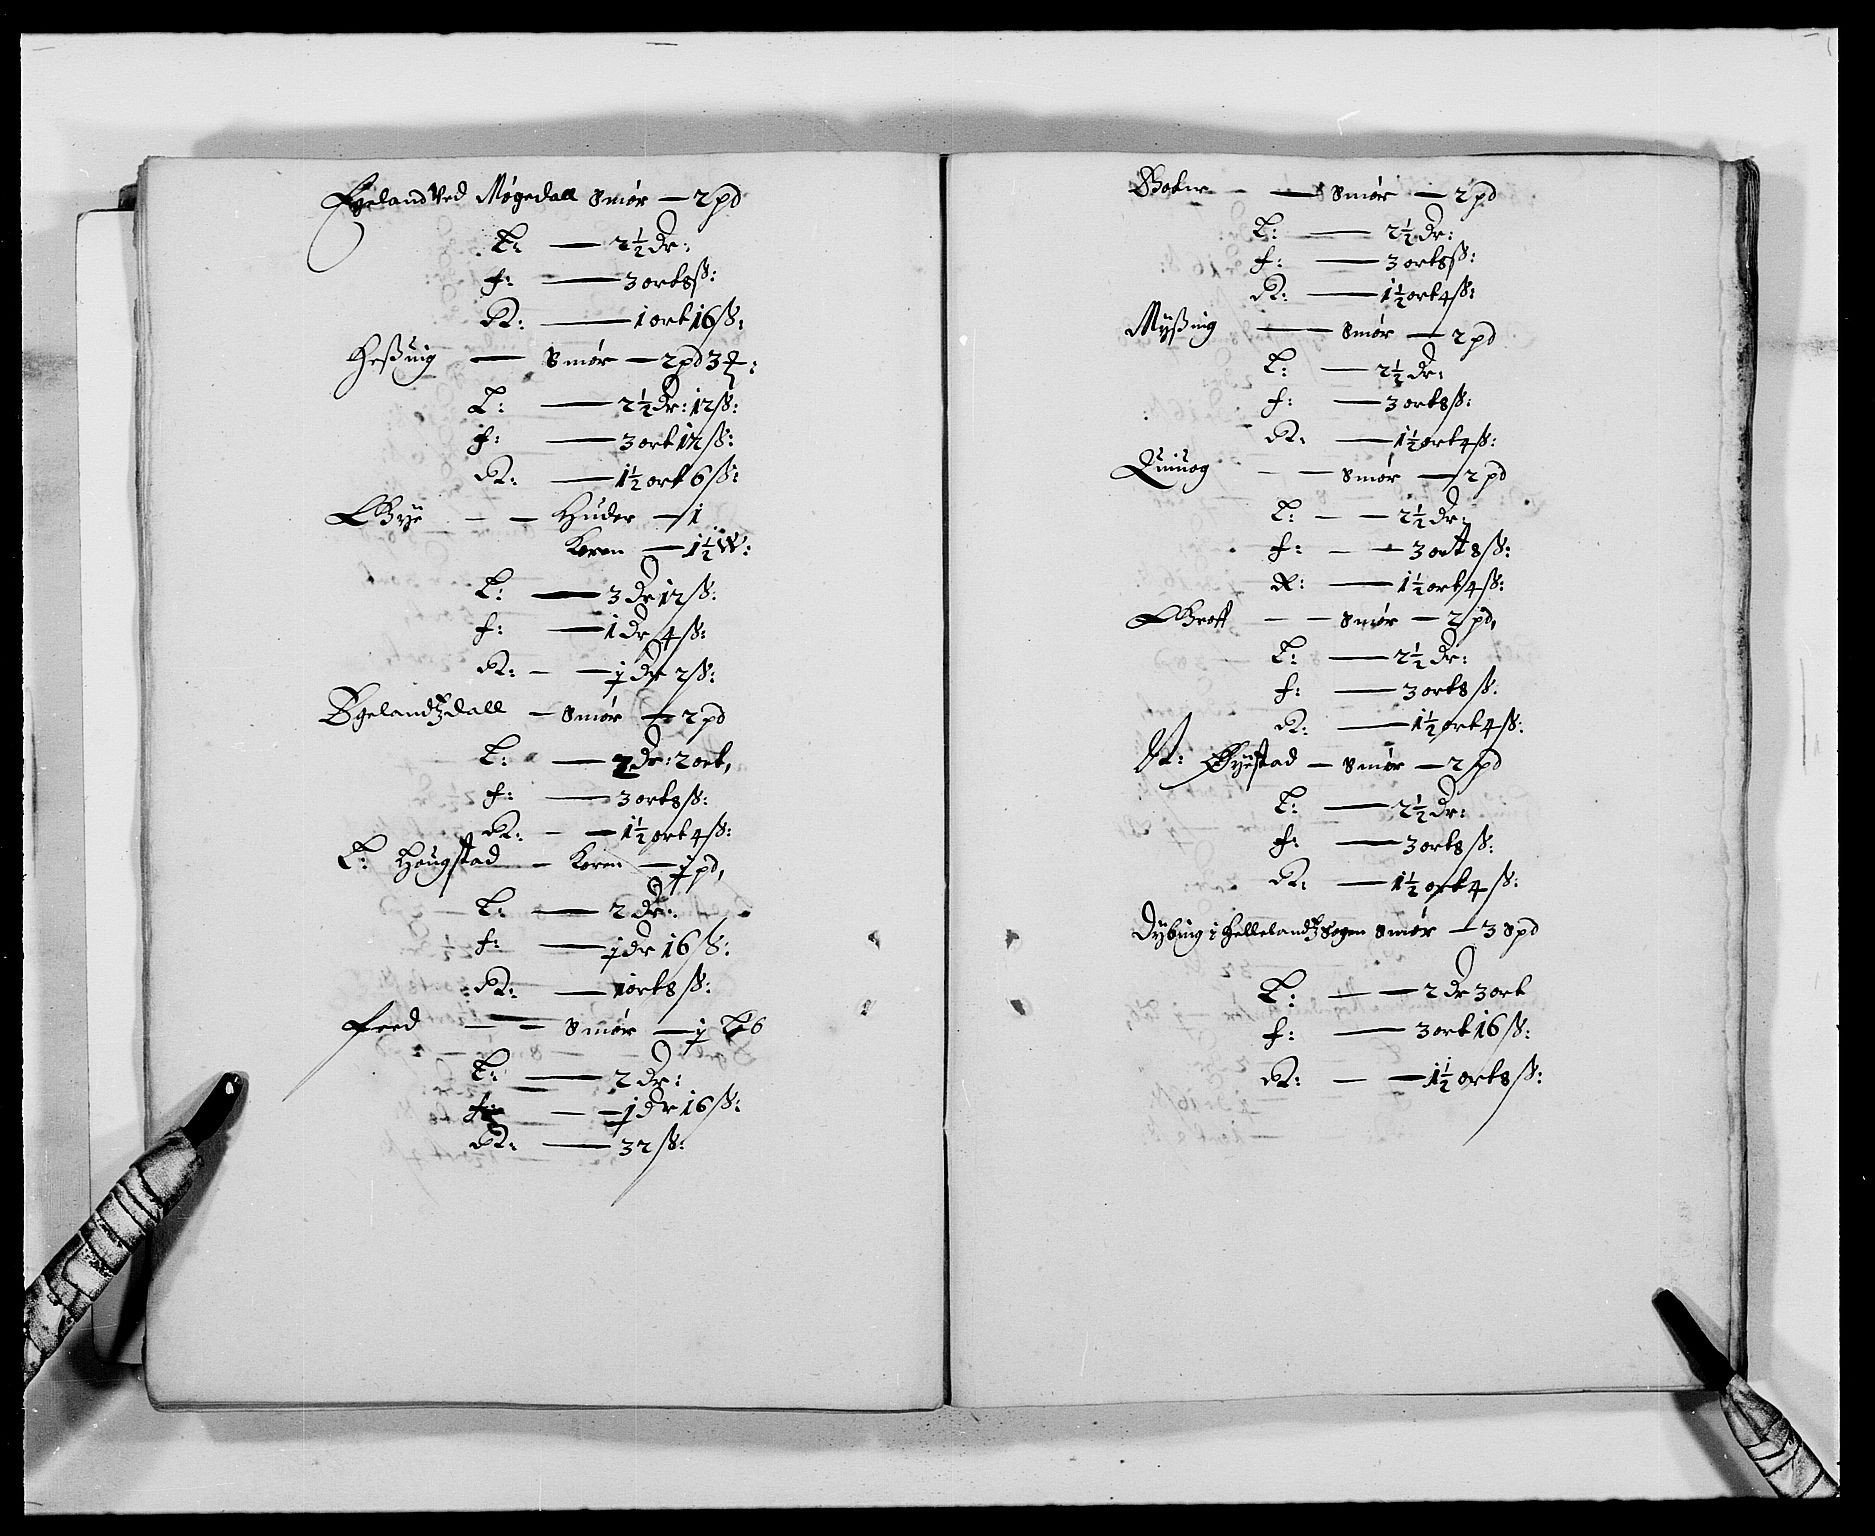 Egeland ved Møgedall Smør — 2 pd
L: — 2½ dr:
f: — 3 ort 8 ß:
R: — 1 ort 16 ß:
Heßuig — Smør — 2 pd 3
L: — 2½ dr: 12 ß:
f: — 3 ort 12 ß:
R: — 1½ ort 6 ß:
Bye — — Huder — 1
Koren — 1½ W:
L: — 3 dr 12 ß:
f: — 1 dr 4 ß:
R: — — j dr 2 ß:
Egelandtzdall — Smør — 2 pd
L: — 2 dr: 2 ort,
f: — 3 ort 8 ß:
R: — — 1½ ort 4 ß:
L: Hougstad — Koren — j pd,
L: — 2 dr:
f: — j dr 16 ß:
R: — 1 ort 8 ß:
Feed — — Smør — j
L: — 2 dr:
f: — — j dr 16 ß:
R: — 32 ß:
— — Smør — 2 pd
L: — 2½ dr:
f: — 3 ort 8 ß:
R: — 1½ ort 4 ß:
Myßing — Smør — 2 pd
L: — 2½ dr:
f: — 3 ort 8 ß:
R: — 1½ ort 4 ß:
Quiuog — — Smør — 2 pd
L: — — 2½ dr:
f: — — 3 ort 8 ß:
R: — 1½ ort 4 ß:
— — Smør — 2 pd,
L: — 2½ dr:
f: — 3 ort 8 ß:
R: — 1½ ort 4 ß:
Øyestad — Smør — 2 pd
L: — 2½ dr:
f: — 3 ort 8 ß:
R: — 1½ ort 4 ß:
Dybing i Hellelandtz Sogen Smør — 3 Spd
L: — — 2 dr 3 ort
f: — 3 ort 16 ß:
R: — — 1½ ort 8 ß: